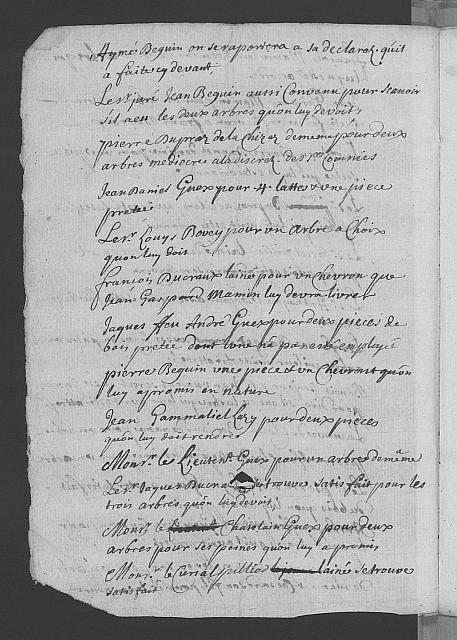 Aymé Beguin on se raportera a sa declarat: quit
a faite cy devant,
Le Sr. juré Jean Beguin aussi Convenu pour Scavoir
s'il a eu les deux arbres qu'on luy devoit
pierre Dupraz de la Chizaz de meme pour deux
arbres mediocres a la discret. des Srs Commis
Jean Daniel Guex pour 4 lattes & une piece
pretée
Le Sr. Louys Bovey pour un Arbre a Choix
qu'on luy doit
francois Ducraux lainé pour un Chevron que
Jean Gaspard Mamin luy devra livrer
Jaques ffeu André Guex pour deux pieces de
bois pretée dont une na pas esté employée
pierre Beguin une piece & un Chevront qu'on
luy a promis en nature
Jean Gammaliel pour deux pieces
qu'on luy doit rendre
Monsr. le Lieutent Guex pour un arbre de même
Le Sr. Jaques se trouve satisfait pour les
trois arbres qu'on luy devoit,
Monsr. le Chatelain Guex pour deux
arbres pour ses peines qu'on luy a promis
Monsr. le Curial lainé se trouve
satisfait